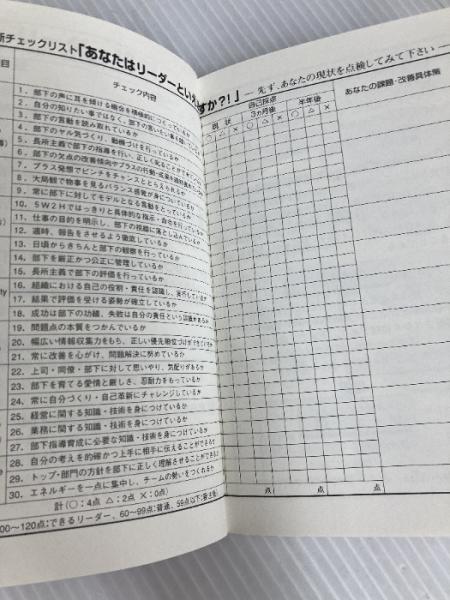 断チェックリスト「あなたはリーダーといえますか?!」 — 先ず、あなたの現状を点検してみて下さい —
目
チェック内容
自己採点
現状
3カ月後
半年後
○ △ × ○ △ × ○ △ ×
あなたの課題・改善具体策
1. 部下の声に耳を傾ける機会を積極的につくっているか
2. 自分の知りたい事ではなく、部下の言いたい事を聴い
3. 部下の言動を読み取れているか
4. 部下のヤル気づくり、動機づけを行っているか
5. 長所主義で部下の指導を行い、正しく叱ることが
6. 部下の欠点の改善傾向やプラスの行動・成果を
7. プラス発想でピンチをチャンスととらえられるか
8. 大局観で物事を見るバランス感覚が身についているか
9. 常に部下に対してモデルとなる言動をとっているか
10. 5W2Hではっきりと具体的な指示・命令を行っているか
11. 仕事の目的を明示し、部下の役割に落とし込んでいるか
12. 適時、報告をさせるよう徹底しているか
13. 日頃からきちんと部下の観察を行っているか
14. 部下を厳正かつ公正に管理しているか
15. 長所主義で部下の評価を行っているか
16. 組織における自己の役割・責任を認識し、実行しているか
17. 結果で評価を受ける姿勢が確立しているか
18. 成功は部下の功績、失敗は自分の責任という認識があるか
19. 問題点の本質をつかんでいるか
20. 幅広い情報収集力をもち、正しい優先順位づけができているか
21. 常に改善を心がけ、問題解決に努めているか
22. 上司・同僚・部下に対して思いやり、気配りがあるか
23. 部下を育てる愛情と厳しさ、忍耐力をもっているか
24. 常に自分づくり・自己革新にチャレンジしているか
25. 経営に関する知識・技術を身につけているか
26. 業務に関する知識・技術を身につけているか
27. 部下指導育成に必要な知識・技術を身につけているか
28. 自分の考えを的確かつ上手に相手に伝えることができるか
29. トップ・部門の方針を部下に正しく理解させることができるか
30. エネルギーを一点に集中し、チームの勢いをつくれるか
計(○:4点 △:2点 ×:0点)
点 点 点
00〜120点:できるリーダー、60〜99点:普通、59点以下:要注意